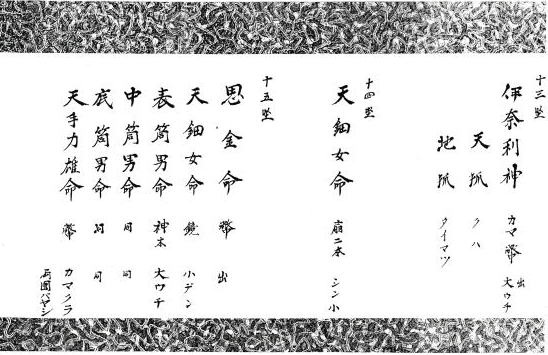 十三坐
伊奈利神 カマ 幣 出 大ウチ
天狐 クハ
地狐 タイマツ
十四坐
天鈿女命 扇二本 シン小
十五坐
思金命 幣 出
天鈿女命 鏡 小デン
表筒男命 神木 大ウチ
中筒男命 同 同
底筒男命 同 同
天手力雄命 幣 カマクラ
両国バヤシ